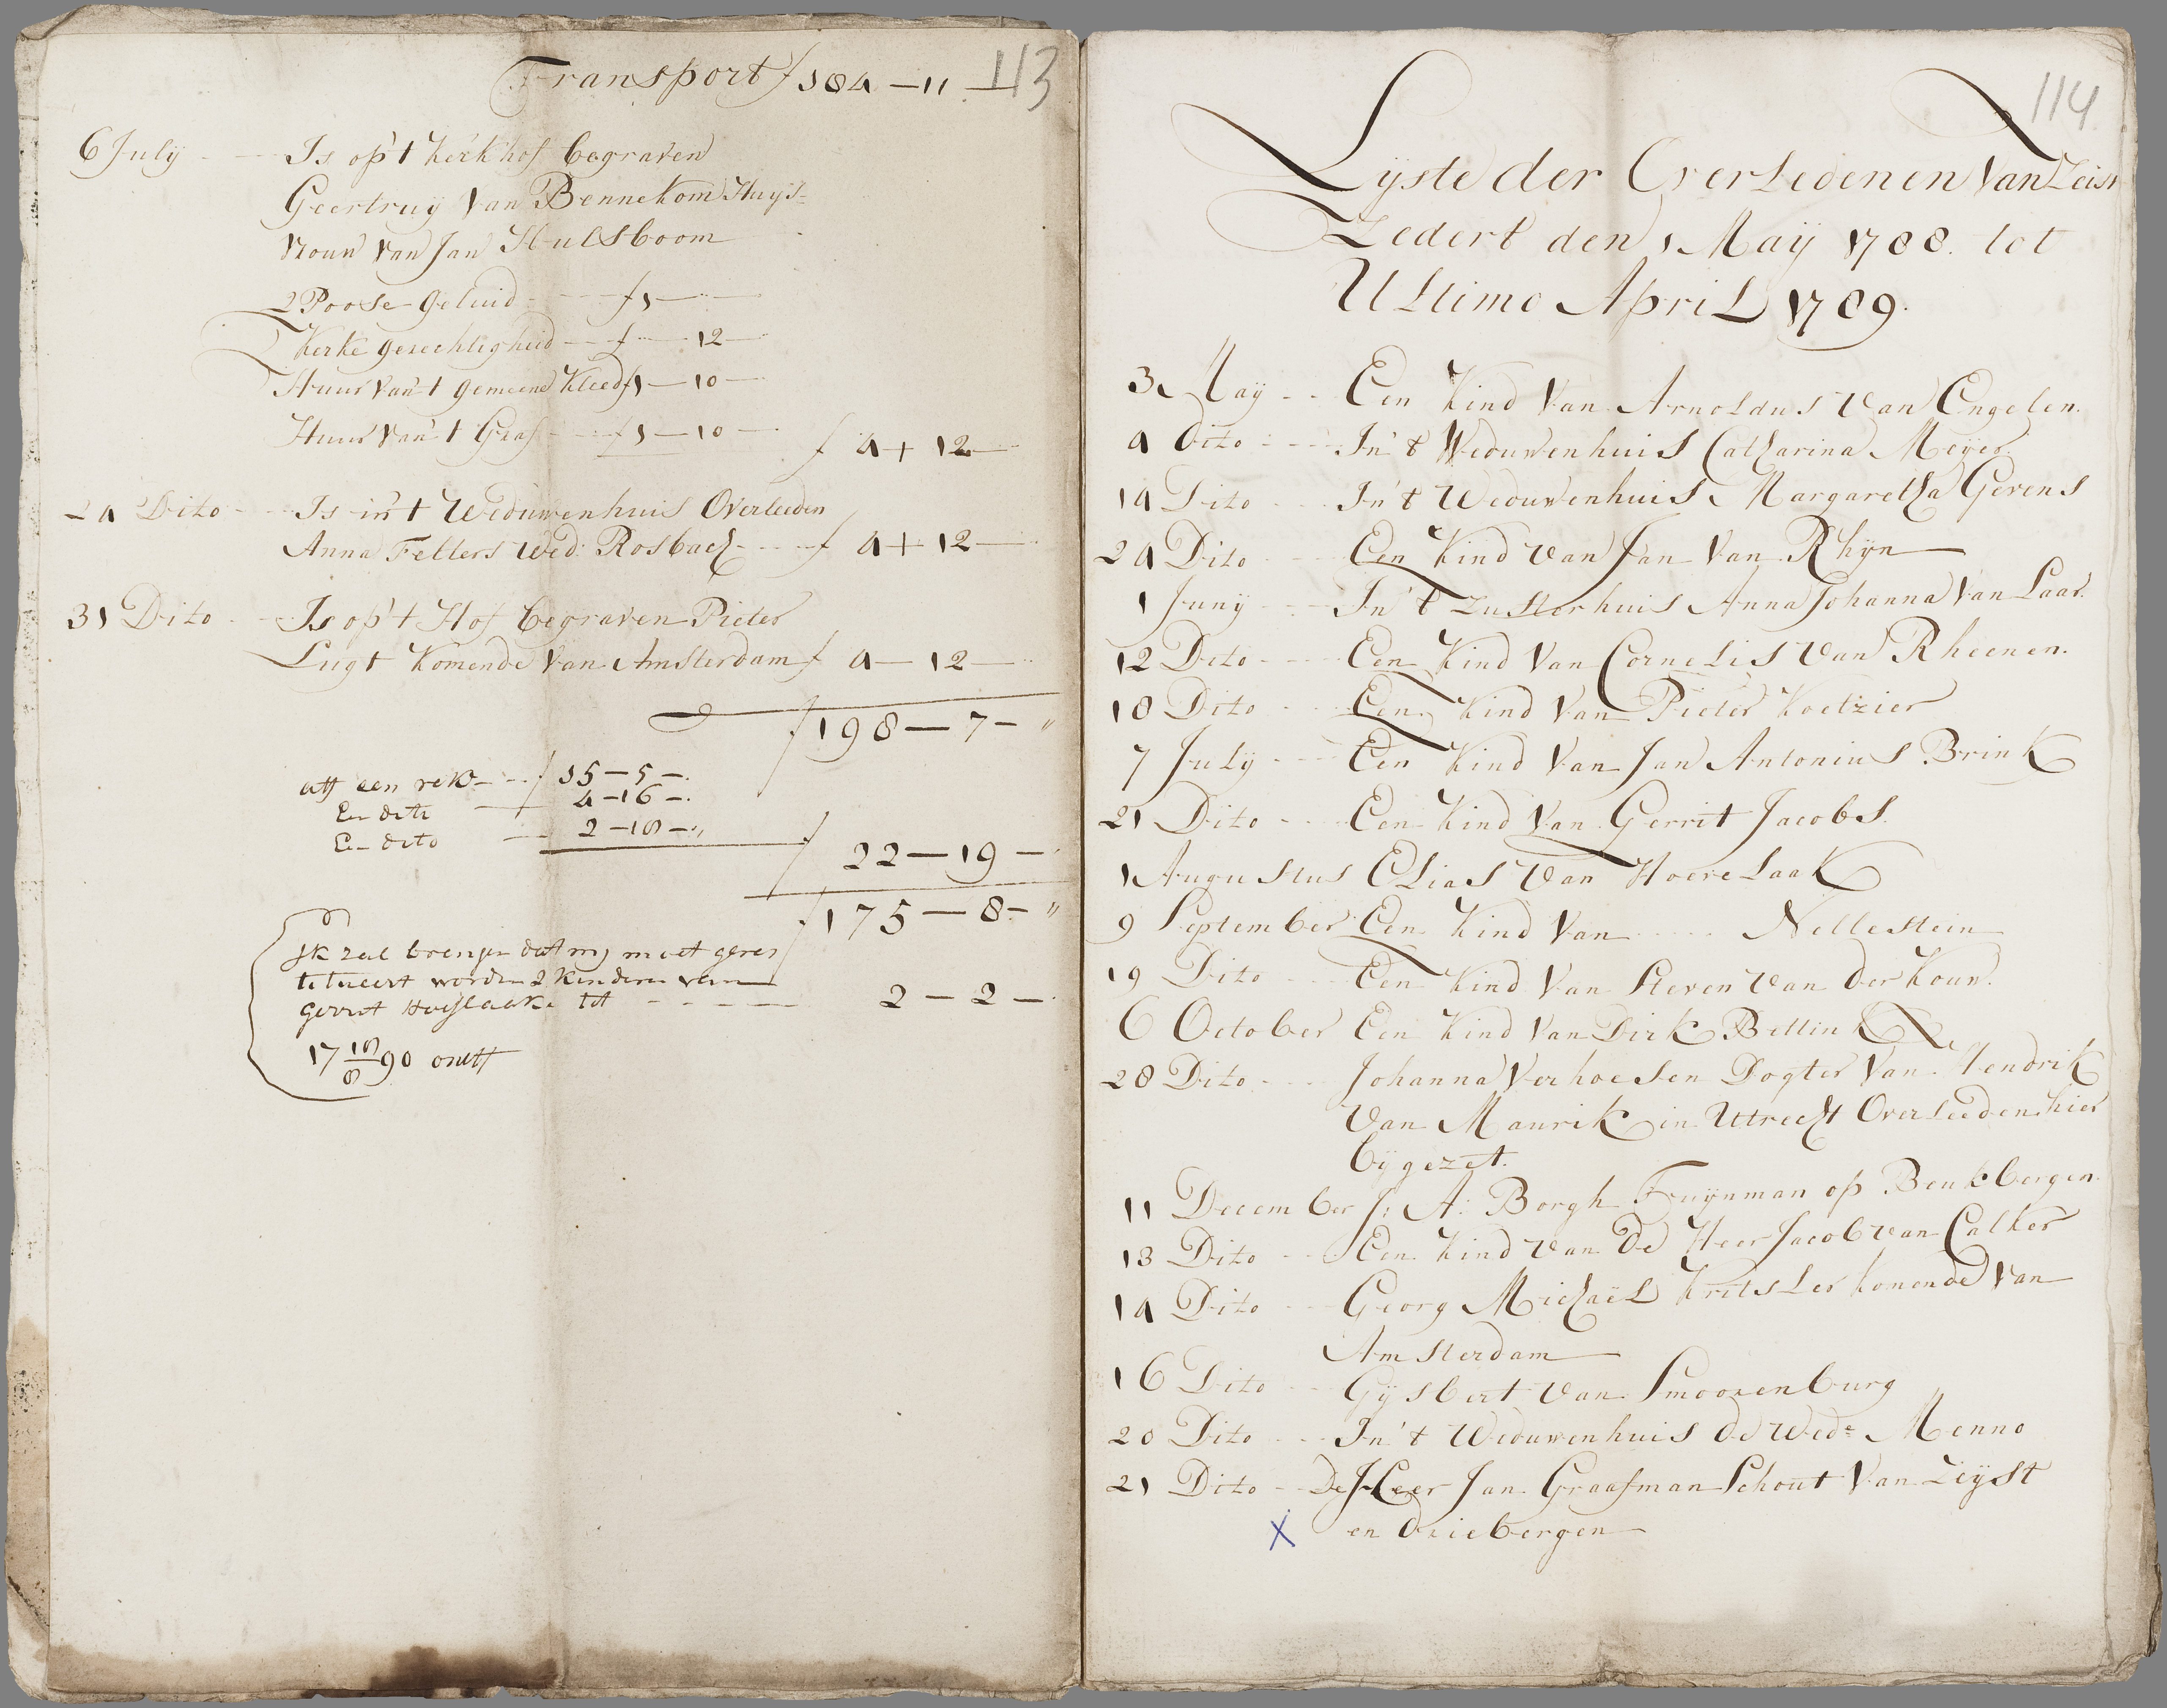 113
Transport f 184 — 11 —
6 July Is op't kerkhof begraven
Geertruy Van Bennekom Huys=
vrouw van Jan Hulsboom
2 Poose geluid f 1 —
Kerke gerechtigheid f — 12 —
Huur van't gemeene Kleed f 1 — 10 —
Huur van't Graf f 1 — 10 — f 4 + 12 —
24 Dito Is in't Weduwenhuis Overleeden
Anna Fellers Wed: Rosbach f 4 + 12 —
31 Dito Is op't Hof begraven Pieter
Lugt Komende van Amsterdam f 4 — 12 —
f 198 — 7 — "
aff een rek f 15 — 5 —
En dito 4 — 16 —
En dito 2 — 18 — "
f 22 — 19 —
f 175 — 8 — "
Ik zal brengen dat mij moet geres
titueert worden 2 kinderen van
gerrit Hoeflaake tot 2 — 2 —
17 18/8 90 ontf
114
Lyste der Overledenen Van Zeist
Zedert den 1 May 1788. tot
Ultimo April 1789.
3 May Een Kind Van Arnoldus Van Engelen.
4 Dito In't Weduwenhuis Catharina Meyer.
14 Dito In't Weduwenhuis Margaretha Gevens
24 Dito Een Kind van Jan Van Rhyn
1 Juny In't Zusterhuis Anna Johanna Van Laar.
12 Dito Een Kind Van Cornelis Van Rheenen.
18 Dito Een Kind Van Pieter Koetzier
7 July Een Kind Van Jan Antonius Brink
21 Dito Een Kind Van Gerrit Jacobs.
1 Augustus Elias Van Hoevelaak
9 September Een Kind Van Nellestein
19 Dito Een Kind Van Steven Van der Kouw.
6 October Een Kind Van Dirk Bettink
28 Dito Johanna Verhoesen Dogter Van Hendrik
Van Maurik in Utrecht Overleeden hier
bygezet.
11 December J: A: Borgh Tuynman op Beukbergen.
13 Dito Een Kind van De Heer Jacob van Calker
14 Dito Georg Michaël Kritsler komende van
Amsterdam
16 Dito Gysbert Van Smoorenburg
20 Dito In't Weduwenhuis de Wed.e Menno
21 Dito De Heer Jan Graafman Schout Van Zeyst
X en Driebergen